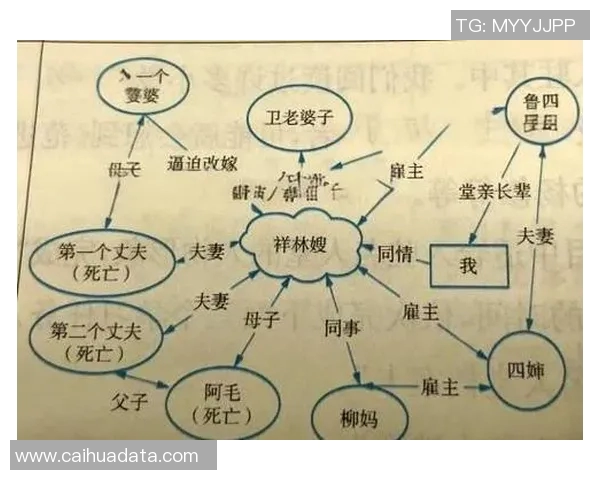 TG: MYYJJPP
一个
婆婆
卫老婆子
鲁四
母子
逼迫改嫁
雇主
堂亲长辈
夫妻
第一个丈夫
（死亡）
夫妻
祥林嫂
同情
我
第二个丈夫
（死亡）
夫妻
母子
同事
雇主
四婶
父子
阿毛
（死亡）
柳妈
雇主
www.caihuadata.com